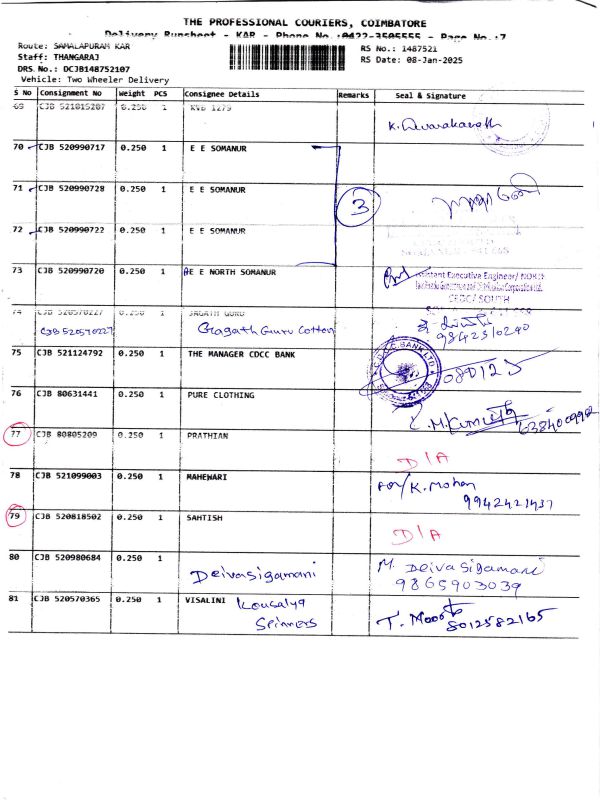 THE PROFESSIONAL COURIERS, COIMBATORE
Delivery Runsheet - KAR - Phone No.:0422-3505555 - Page No.:7
Route: SAMALAPURAM KAR RS No.: 1487521
Staff: THANGARAJ RS Date: 08-Jan-2025
DRS No.: DCJB148752107
Vehicle: Two Wheeler Delivery
S No Consignment No Weight PCS Consignee Details Remarks Seal & Signature
69 CJB 521815287 0.250 1 KVB 1279
70 CJB 520990717 0.250 1 E E SOMANUR
71 CJB 520990728 0.250 1 E E SOMANUR
3
72 CJB 520990722 0.250 1 E E SOMANUR
73 CJB 520990720 0.250 1 AE E NORTH SOMANUR
Assistant Executive Engineer/ NORTH
CEDC/ SOUTH
74 CJB 520570227 0.250 1 JAGATH GURU
CJB 520570227 Gragath Guru Cotton
75 CJB 521124792 0.250 1 THE MANAGER CDCC BANK
080125
76 CJB 80631441 0.250 1 PURE CLOTHING
77 CJB 80805209 0.250 1 PRATHIAN
D/A
78 CJB 521099003 0.250 1 MAHEWARI for/K. Mohan
9942421437
79 CJB 520818502 0.250 1 SAHTISH
D/A
80 CJB 520980684 0.250 1 Deivasigamani M. Deivasigamani
9865903039
81 CJB 520570365 0.250 1 VISALINI Kousalya
Spinners
8012582165